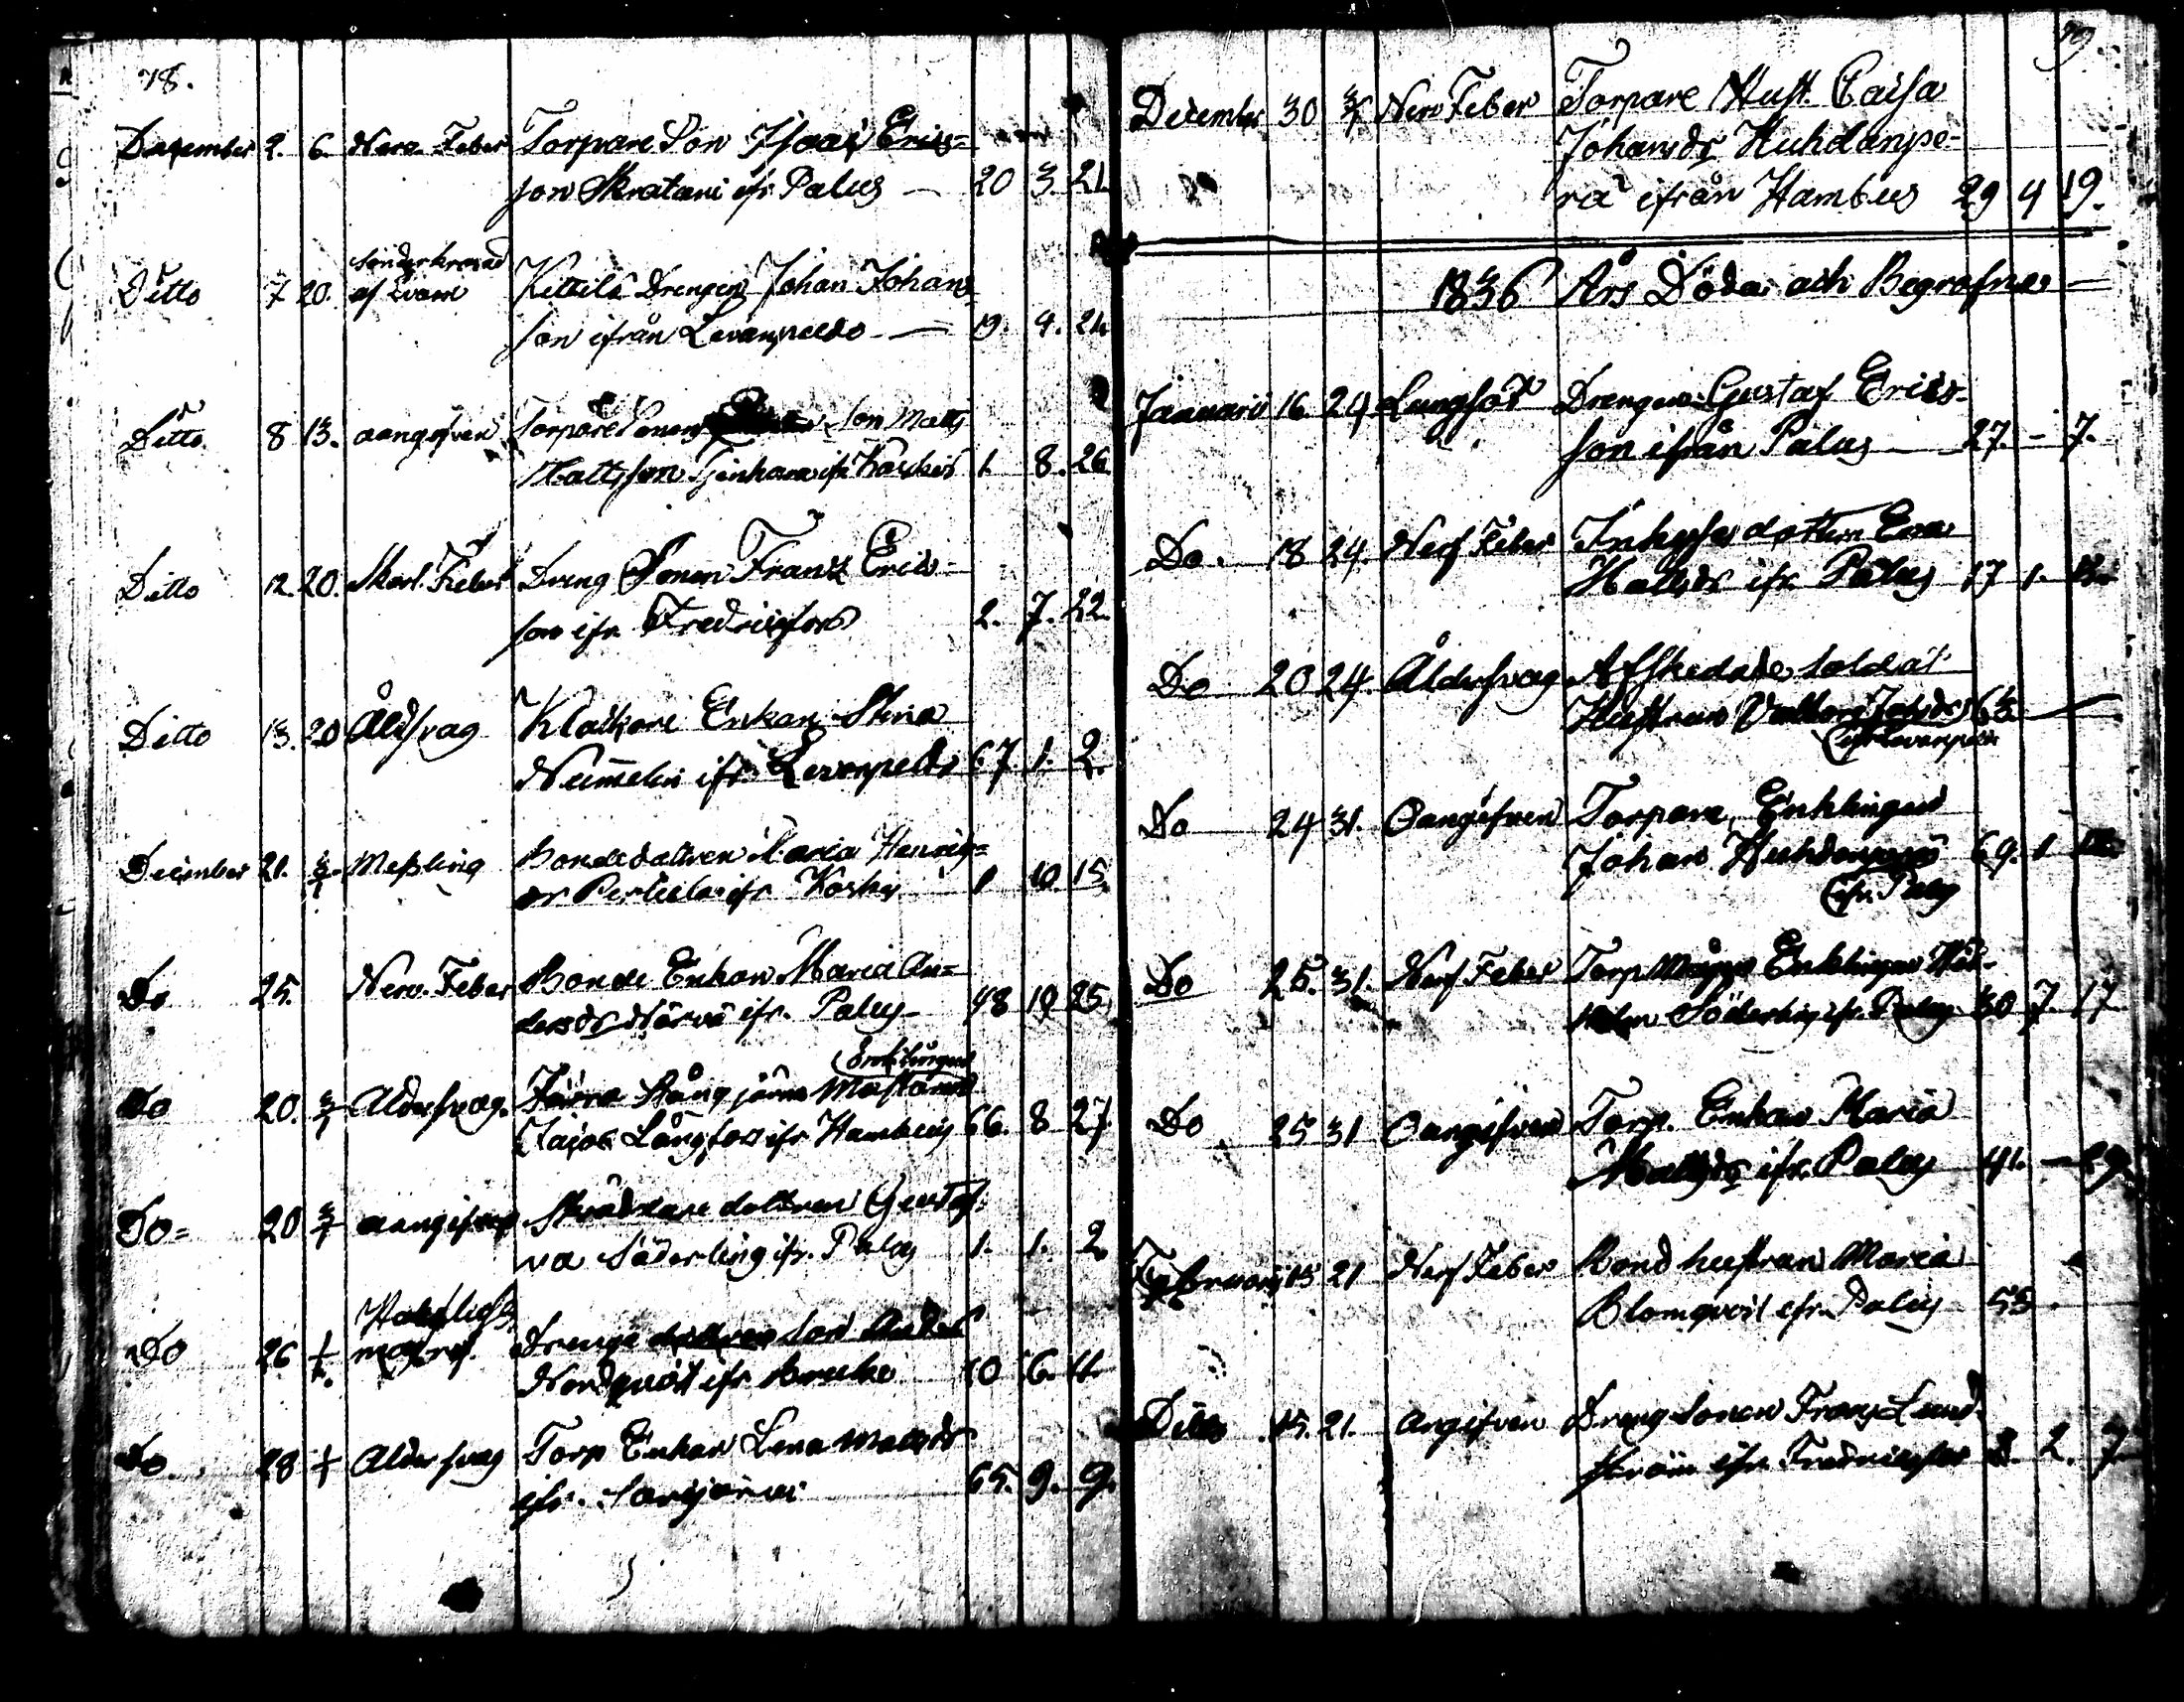 78.
December 2. 6. Nerv. Feber Torpare Son Isaac Erics=
son Skratari ifr Palus — 20 3. 21
Ditto 7 20. sönderkrossad
af Kittilä Drengen Johan Johans
son ifrån — 19. 9. 21.
Ditto 8 13. oangifven Torpare Sonens Son Matts
Mattsson ifr Koskis 1. 8. 26.
Ditto 12. 20. Skarl. Feber Dreng Sonen Frantz Erics-
son ifr. Fredricsfors 2. 7. 22.
Ditto 13. 20 Åldsvag Enkan Stina
Nummelin ifr. 67. 1. 2.
December 21. 3/1 Messling Bondedottren Maria Henrics=
dr Perttula ifr Koskis 1 10. 15.
Do 25. Nerv. Feber Bonde Enkan Maria An=
dersdr Närvä ifr. Palus 48 10 25.
Enklingen
Do 20. 3/1 Åldersvag. Stångjärns Mästaren
Jacob Långfors ifr Hambus 66. 8 27.
Do= 20 3/1 oangifven Skräddare dottren Gustaf=
va Söderling ifr. Palus 1. 1. 2.
Do 26 Drenge Son
Nordqvist ifr 10 6. 11.
Do 28 Åldersvag Torp Enkan Lena Mattsdr
ifr. Sarijärvi 65. 9. 9.
79.
December 30 3/1 Nerv Feber Torpare Hust. Caisa
Johansdr Huhdanpe-
rä ifrån Hambus 29 4 19.
1836 Års Döda och Begrafne —
Januarii 16 24 Lungsot Drengen Gustaf Erics-
son ifrån Palus — 27. – 7.
Do. 18 24. Nerf Feber Inhyses dottern Eva
Mattsdr ifr. Palus 17 1.
Do 20 24. Åldersvag Afskedade soldat
Hustrun Johsdr 63 —
Do 24 31. Oangifven Torpare Enklingen
Johan Huhdanperä 69. 1
ifr. Palus
Do 25. 31. Nerf Feber Torp Enklingen
Söderling ifr. Palus 30 7. 17.
Do 25 31 Oangifven Torp. Enkan Maria
Mattsdr ifr. Palus 41. — 29.
Februarii 15 21 Nerf Feber Bond hustran Maria
Blomqvist ifr. Palus 55.
Ditto 15. 21. Dreng Sonen Frans Lund-
ström ifr. Fredricsfor 2. 7